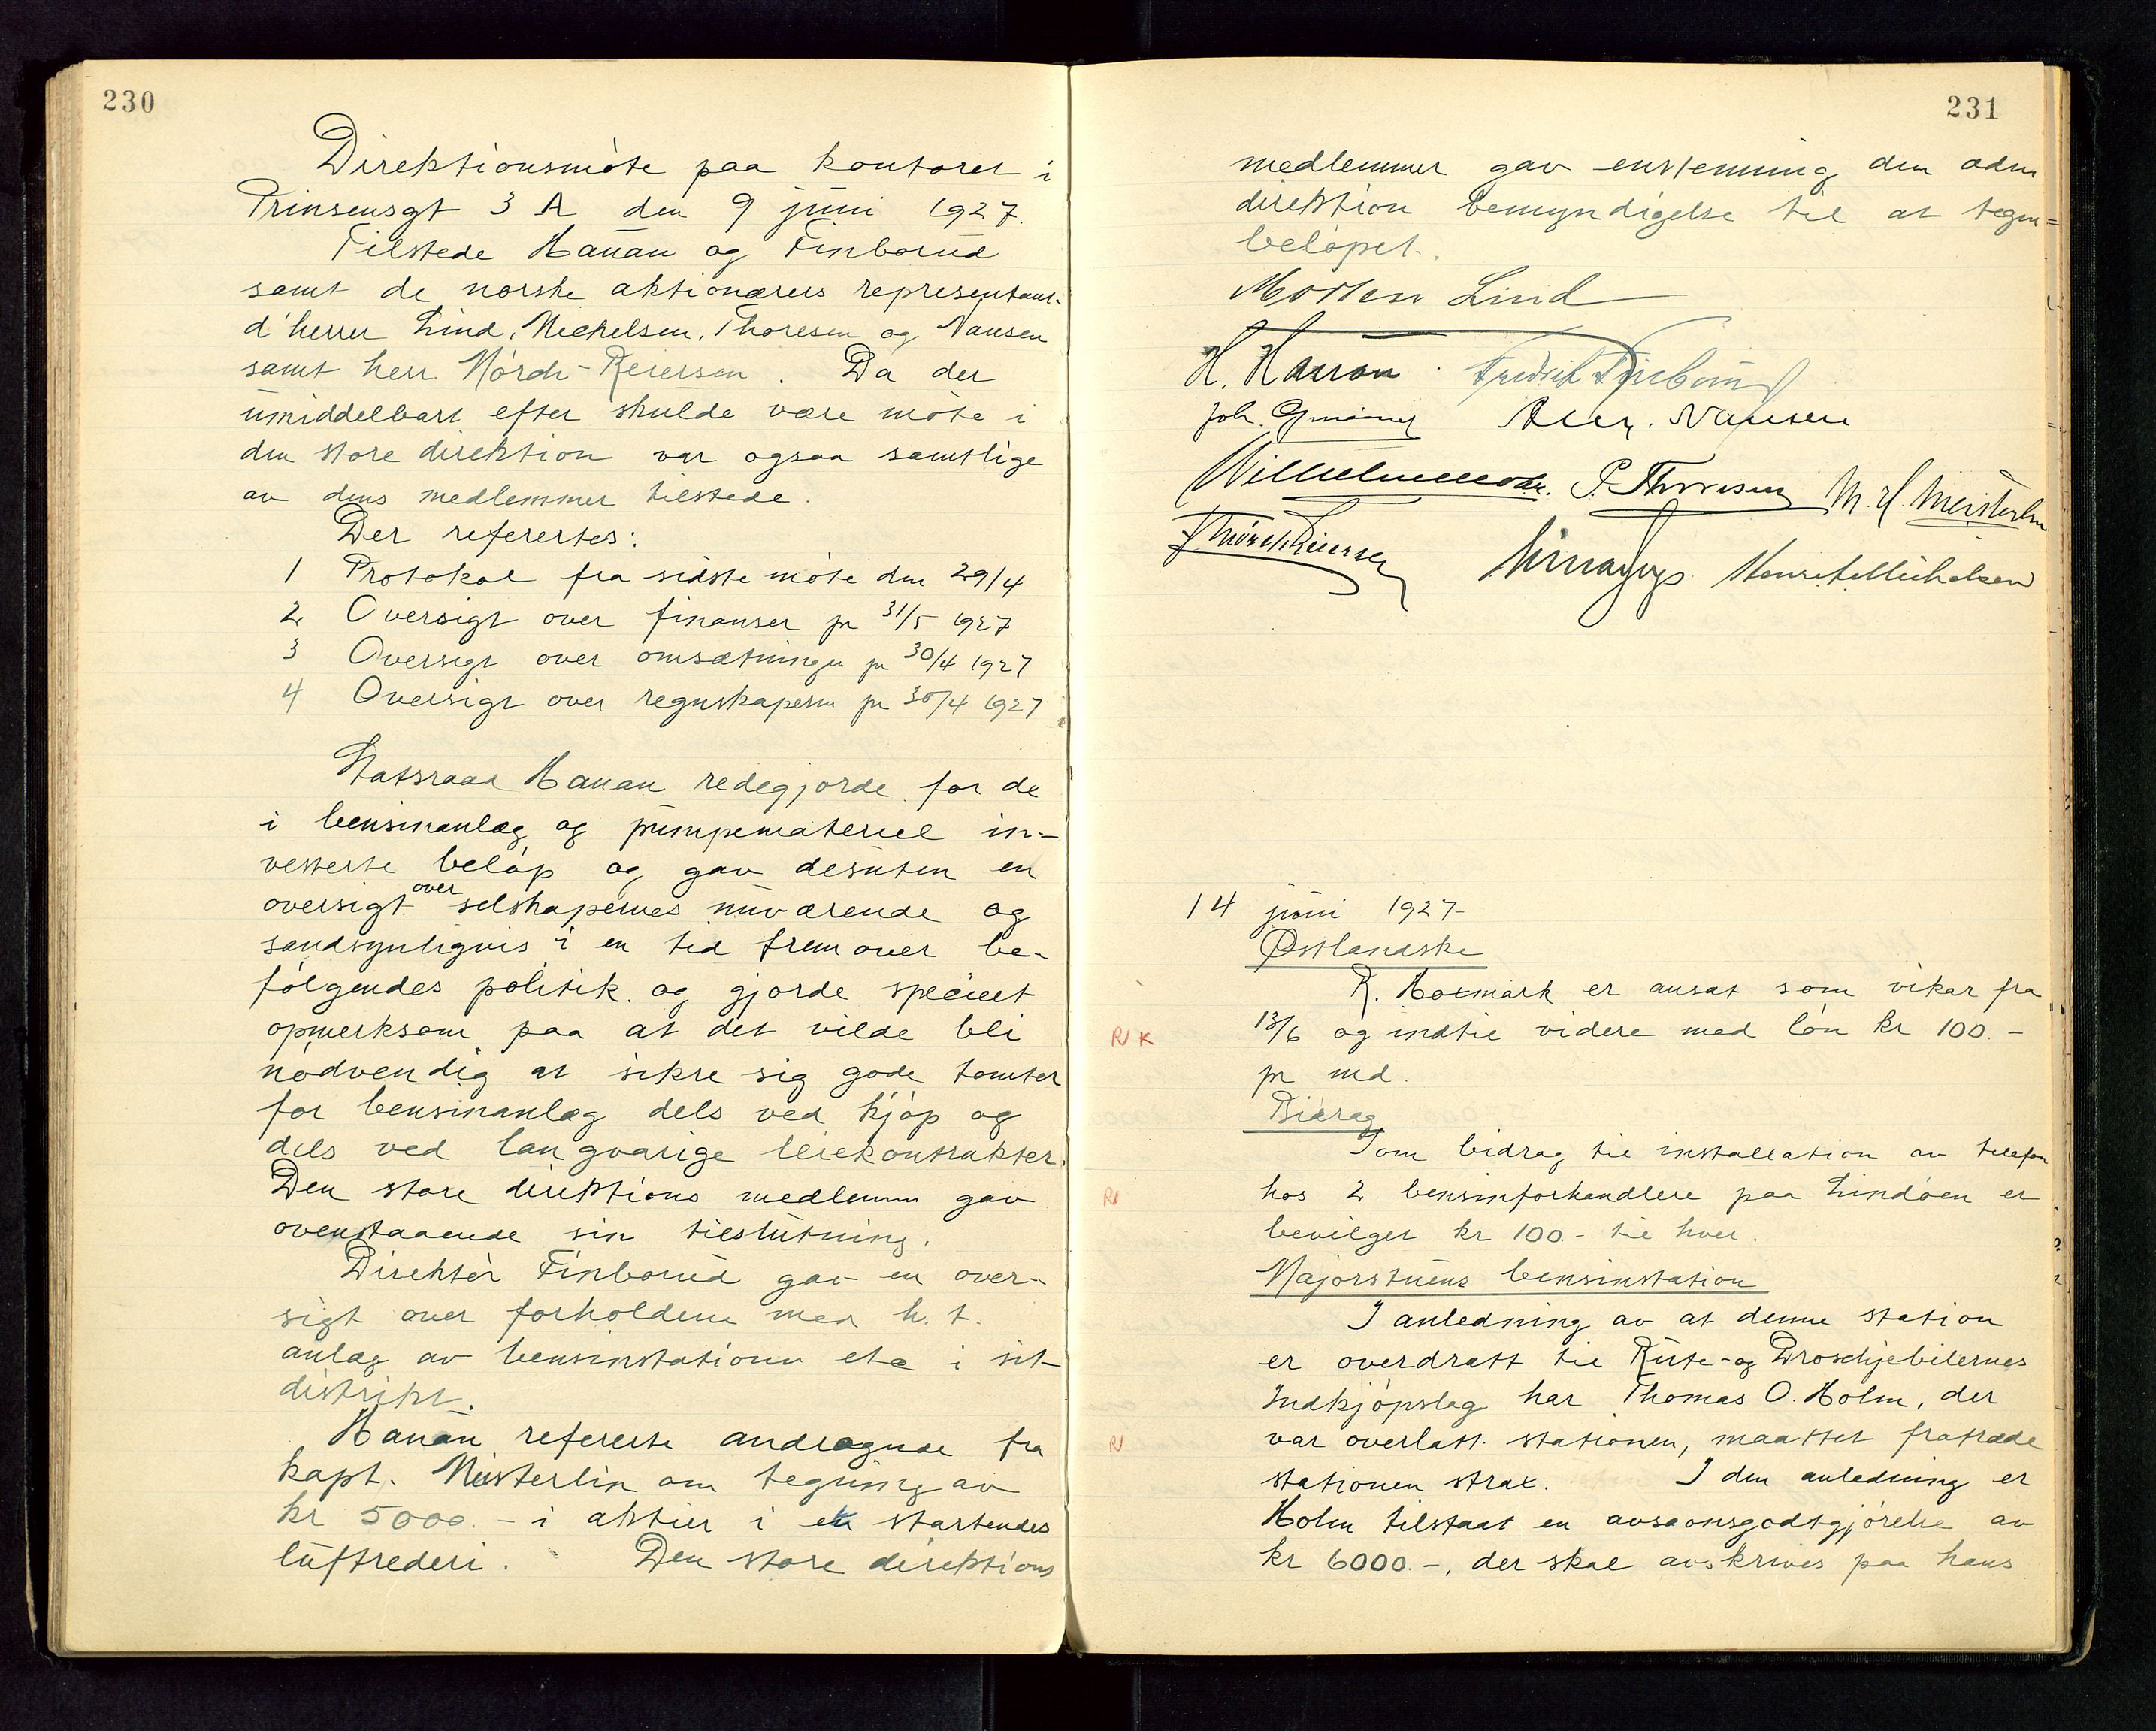 230
Direktionsmöte paa kontoret i
Prinsensgt 3 A den 9 juni 1927.
Tilstede Hanan og Finborud
samt de norske aktionærers representant.
d'herrer Lind, Michelsen, Thoresen og Nansen
samt herr Mörch-Reiersen. Da der
umiddelbart efter skulde være möte i
den store direktion var ogsaa samtlige
av dens medlemmer tilstede.
Der referertes:
1 Protokol fra sidste möte den 29/4
2 Oversigt over finanser pr 31/5 1927
3 Oversigt over omsætningen pr 30/4 1927
4 Oversigt over regnskapern pr 30/4 1927
Statsraad Hanan redegjorde for de
i bensinanlæg og pumpemateriel in-
vesterte belöp og gav desuten en
oversigt over selskapernes nuværende og
sandsynligvis i en tid fremover be-
fölgendes politik og gjorde specielt
opmerksom paa at det vilde bli
nödvendig at sikre sig gode tomter
for bensinanlæg dels ved kjöp og
dels ved langvarige leiekontrakter.
Den store direktions medlemm gav
ovenstaaende sin tilslutning.
Direktör Finborud gav en over-
sigt over forholdene med h. t.
anlæg av bensinstationer etc i sit
distrikt.
Hanan refererte andragende fra
kapt. Meisterlin om tegning av
kr 5000.- i aktier i et startendes
luftrederi. Den store direktions
231
medlemmer gav enstemmig den adm
direktion bemyndigelse til at tegne
belöpet.
Morten Lind
H. Hanan Fredrik Finborud
Joh. Alex. Nansen
P. Thoresen M. H. Meisterlin
Mörch Reiersen Michelsen
14 juni 1927-
Østlandske
R. Hoxmark er ansat som vikar fra
R K 13/6 og indtil videre med lön kr 100.-
pr md.
Bidrag
Som bidrag til installation av telefon
R hos 2 bensinforhandlere paa Lindöen er
bevilget kr 100.- til hver.
Majorstuens bensinstation
I anledning av at denne station
er overdratt til Rute- og Droschjebilernes
Indkjöpslag har Thomas O. Holm, der
R var overlatt stationen, maattet fratræde
stationen strax. I den anledning er
Holm tilstaat en avsavnsgodtgjörelse av
kr 6000.-, der skal avskrives paa hans